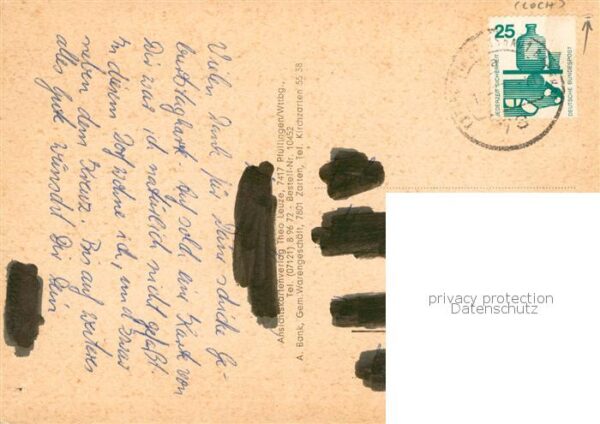 (LOCH)
25
JEDERZEIT SICHERHEIT
DEUTSCHE BUNDESPOST
Vielen Dank für Deine schicke Ge-
burtstagskarte. Auf solch eine Karte von
Dir war ich natürlich nicht gefaßt.
In diesem Dorf wohne ich, und zwar
neben dem Kreuz. Bis auf weiteres
alles Gute wünscht Dir Dein
Ansichtskartenverlag Theo Leuze, 7417 Pfullingen/Wttbg.,
Tel. (07121) 8 96 72 - Bestell-Nr. 10452
A. Bank, Gem. Warengeschäft, 7801 Zarten, Tel. Kirchzarten 55 38
privacy protection
Datenschutz